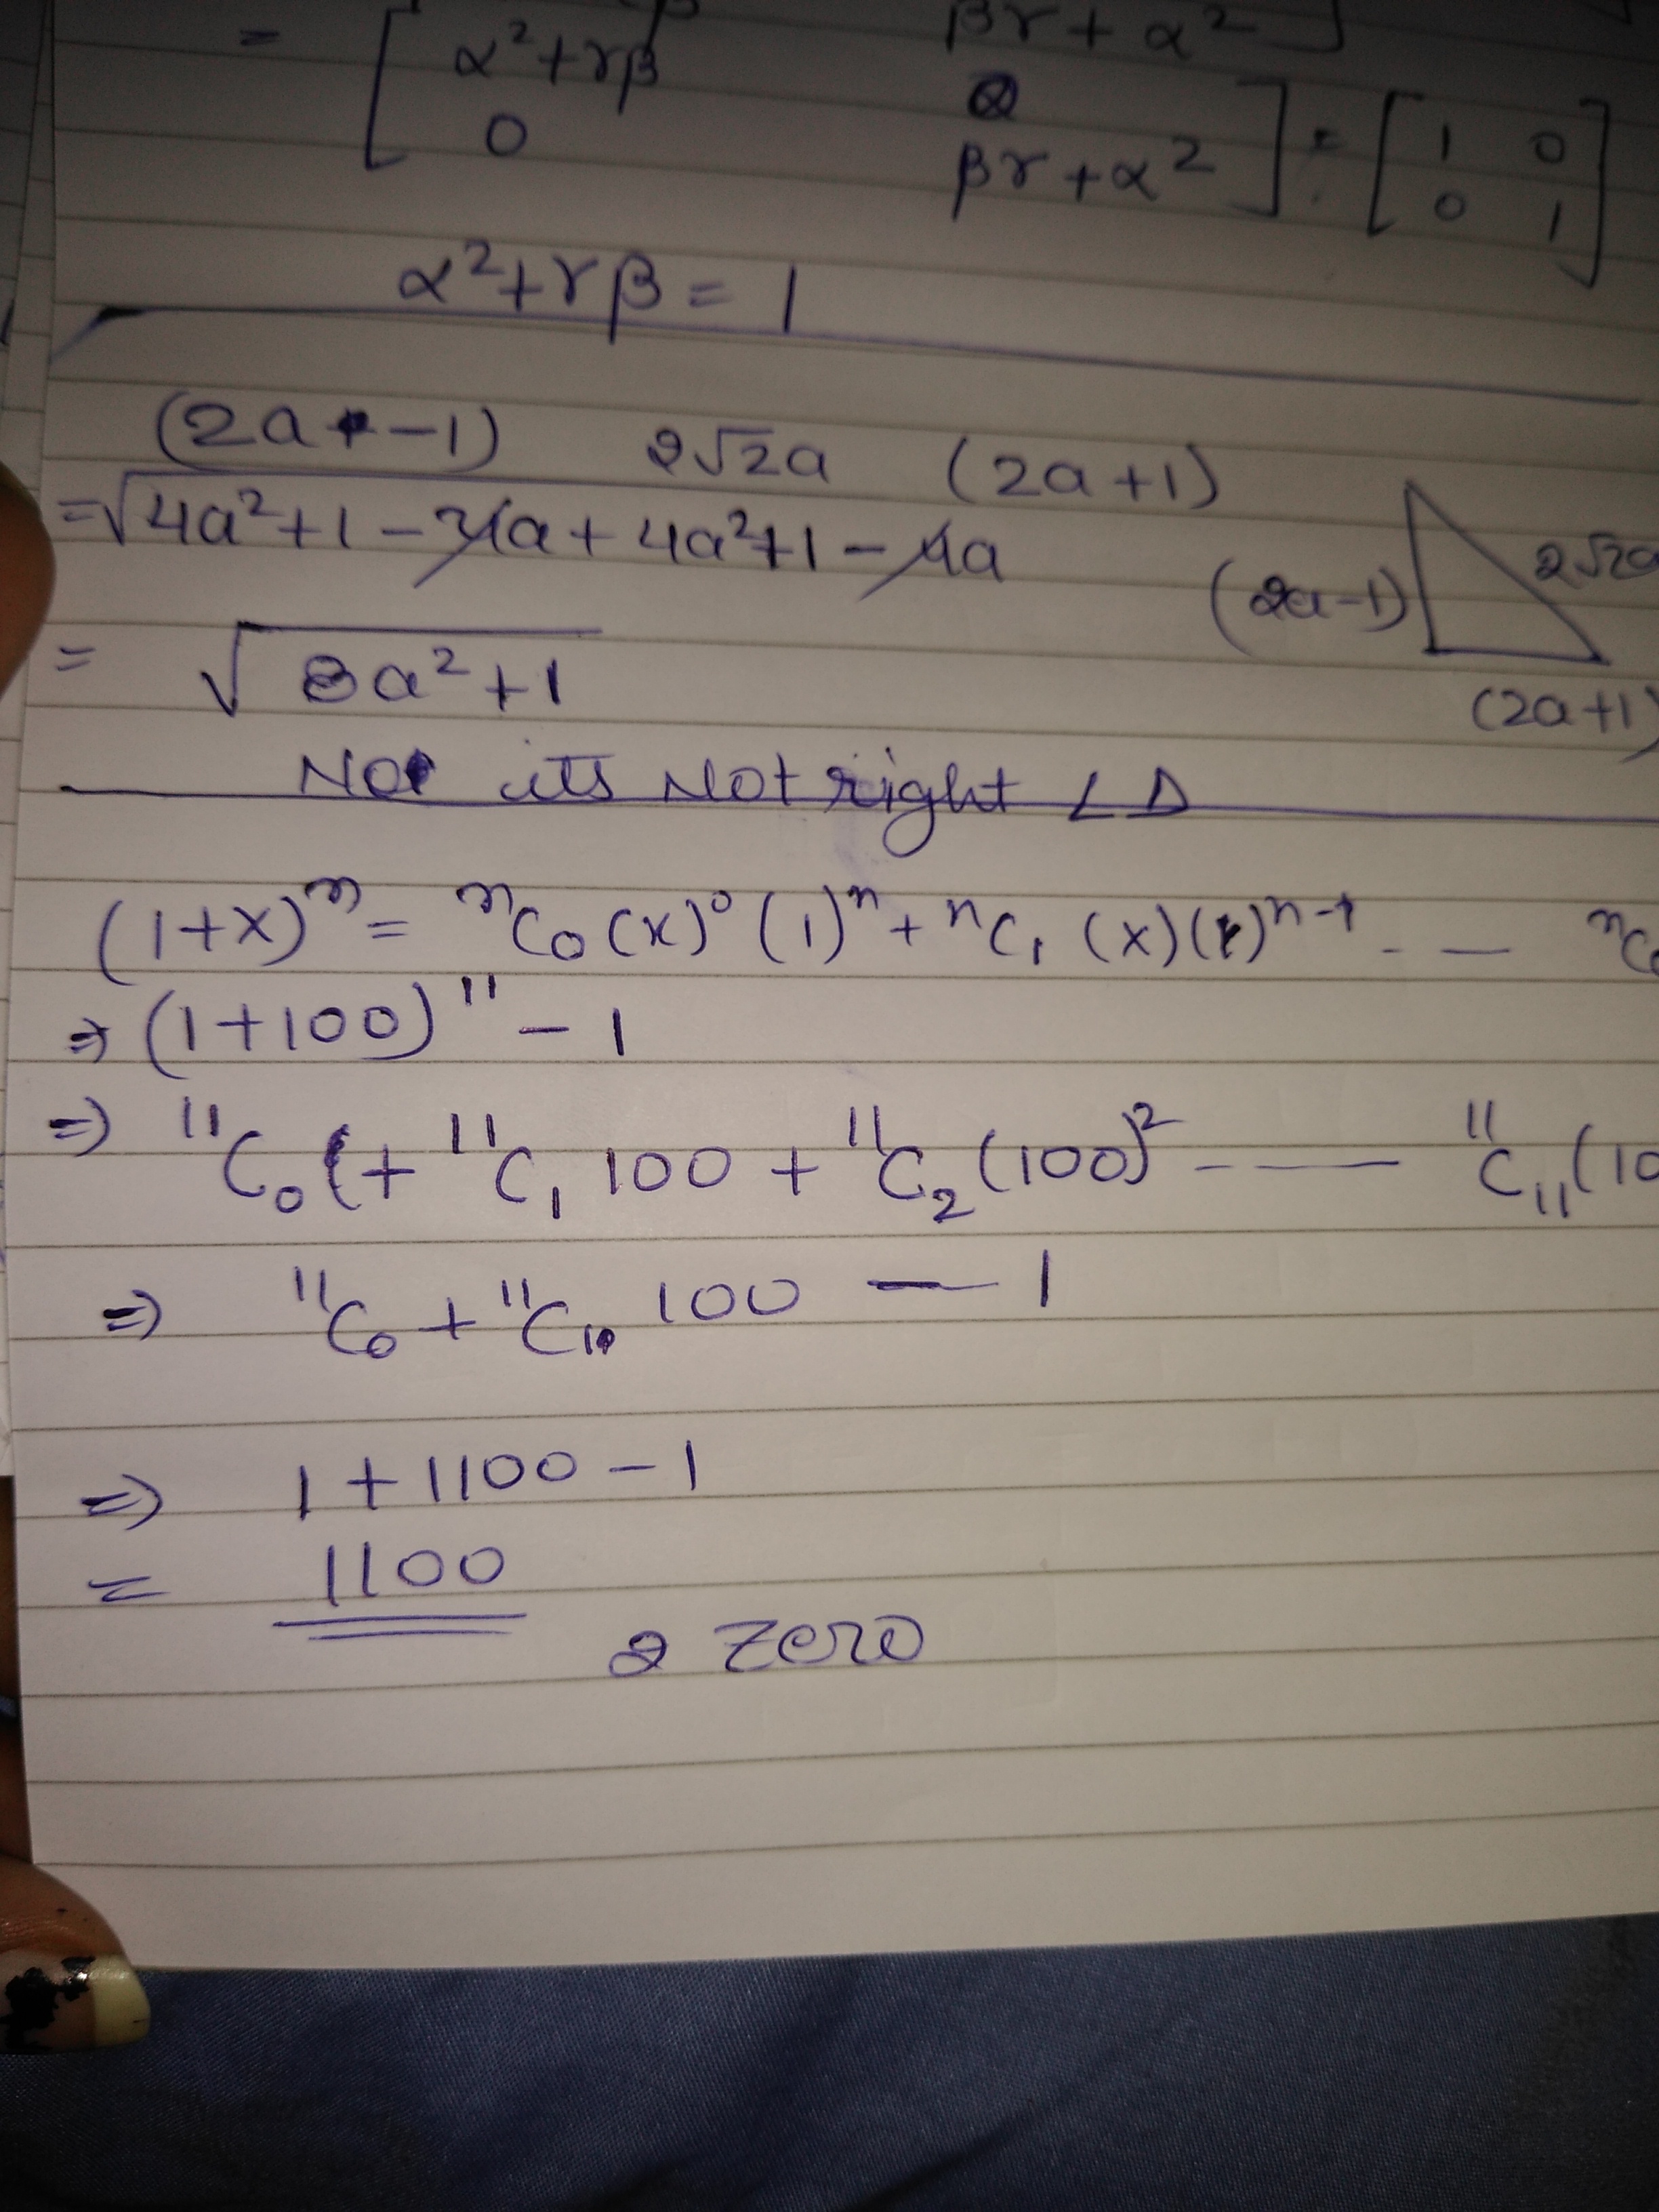 βγ + α² ]
= [ α² + γβ
0 βγ + α² ] = [ 1 0
0 1 ]
α² + γβ = 1
(2a - 1) 2√2a (2a + 1)
= √4a² + 1 - 4a + 4a² + 1 - 4a
(2a-1) 2√2a
= √8a² + 1
(2a+1)
Not its Not right ∠ Δ
(1+x)ⁿ = ⁿC₀ (x)⁰ (1)ⁿ + ⁿC₁ (x)(1)ⁿ⁻¹ - —
⇒ (1+100)¹¹ - 1
⇒ ¹¹C₀ + ¹¹C₁ 100 + ¹¹C₂ (100)² - - — ¹¹C₁₁ (10
⇒ ¹¹C₀ + ¹¹C₁₀ 100 — 1
⇒ 1 + 1100 - 1
= 1100
2 Zero